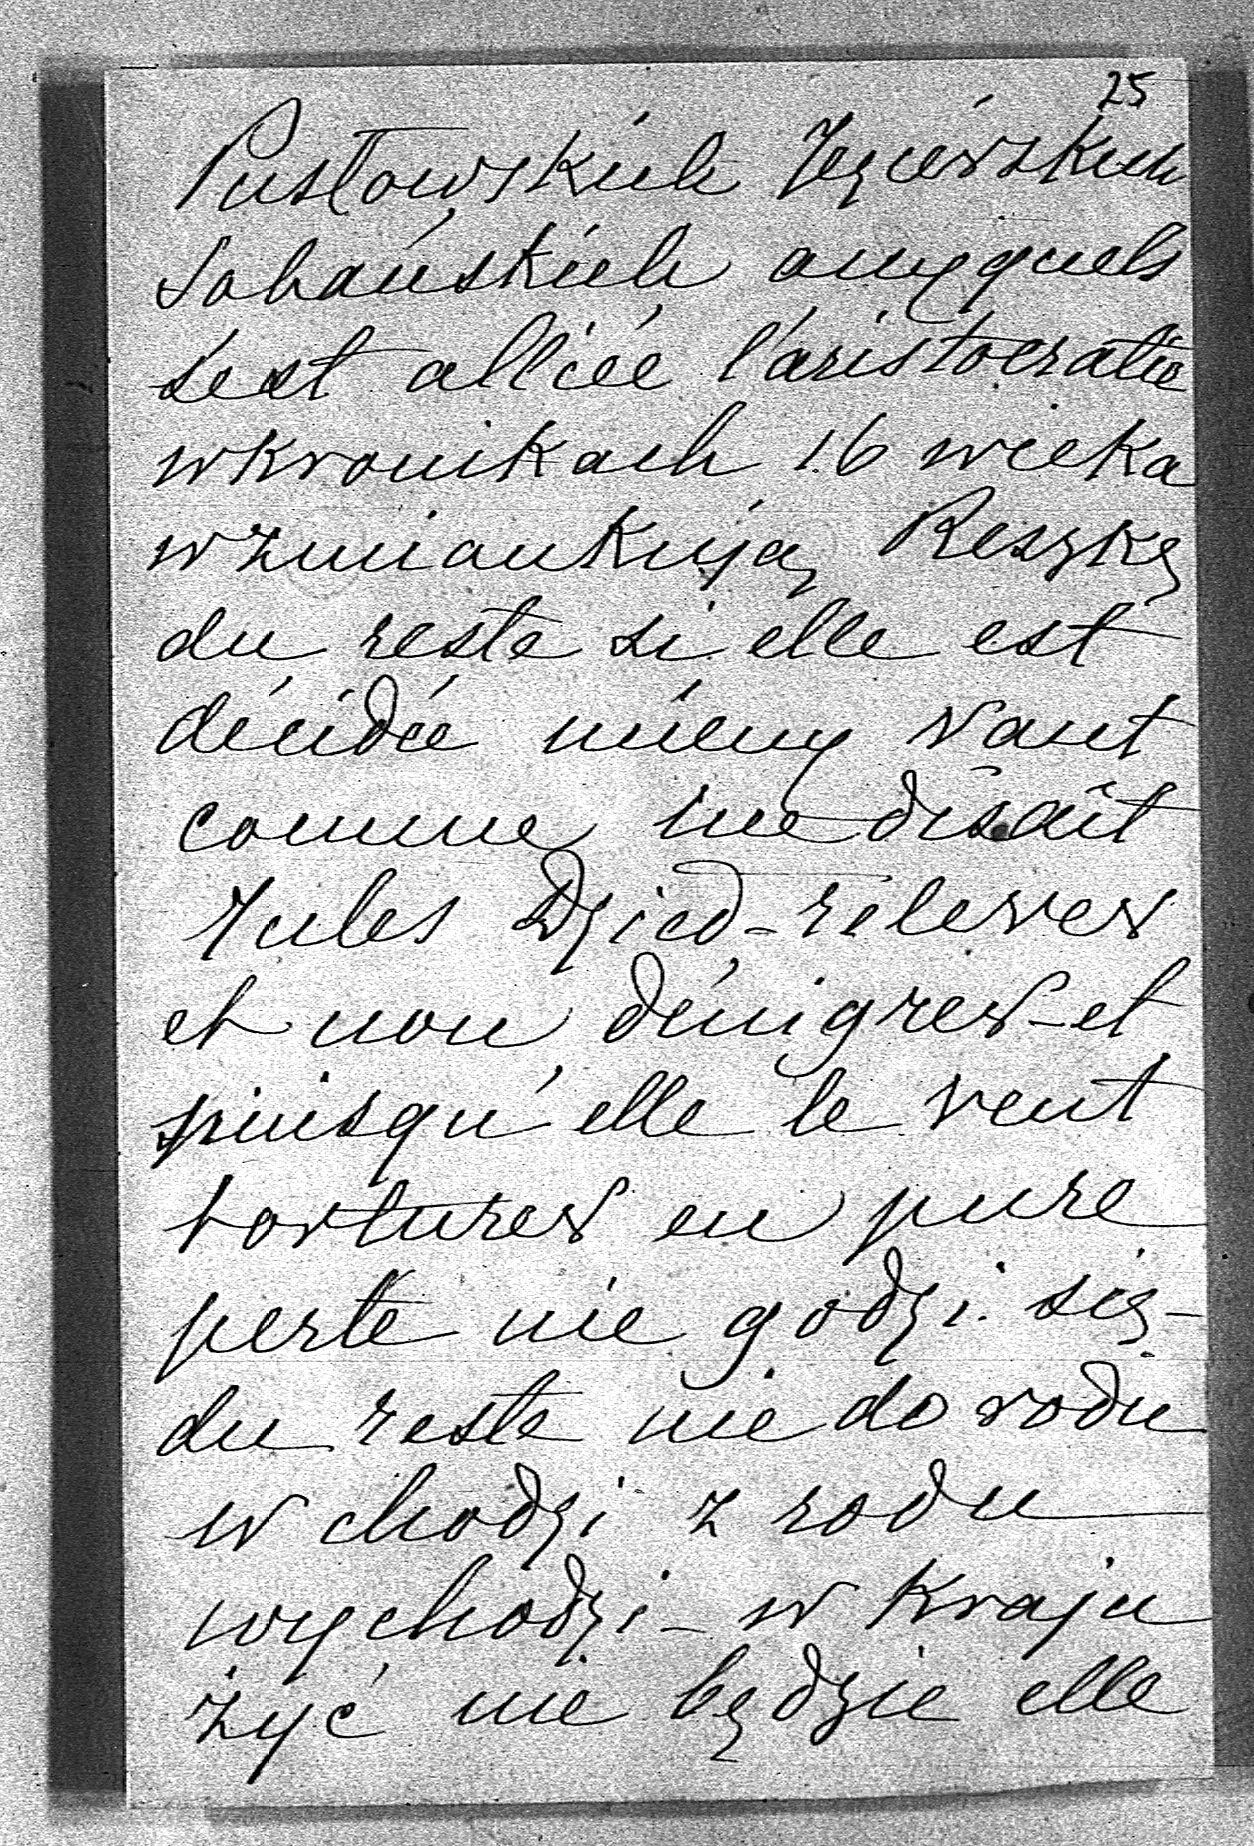 25
Pusłowskich Jezierskich
Sobańskich auxquels
s'est alliée l'aristocratie
w kronikach 16 wieka
wzmiankują Reszkę
du reste si elle est
décidée mieux vaut
comme me disait
Jules Dzied - relever
et non dénigrer - et
puisqu'elle le veut
torturer en pure
perte nie godzi się -
du reste nie do rodu
wchodzi z rodu
wychodzi - w kraju
żyć nie będzie elle